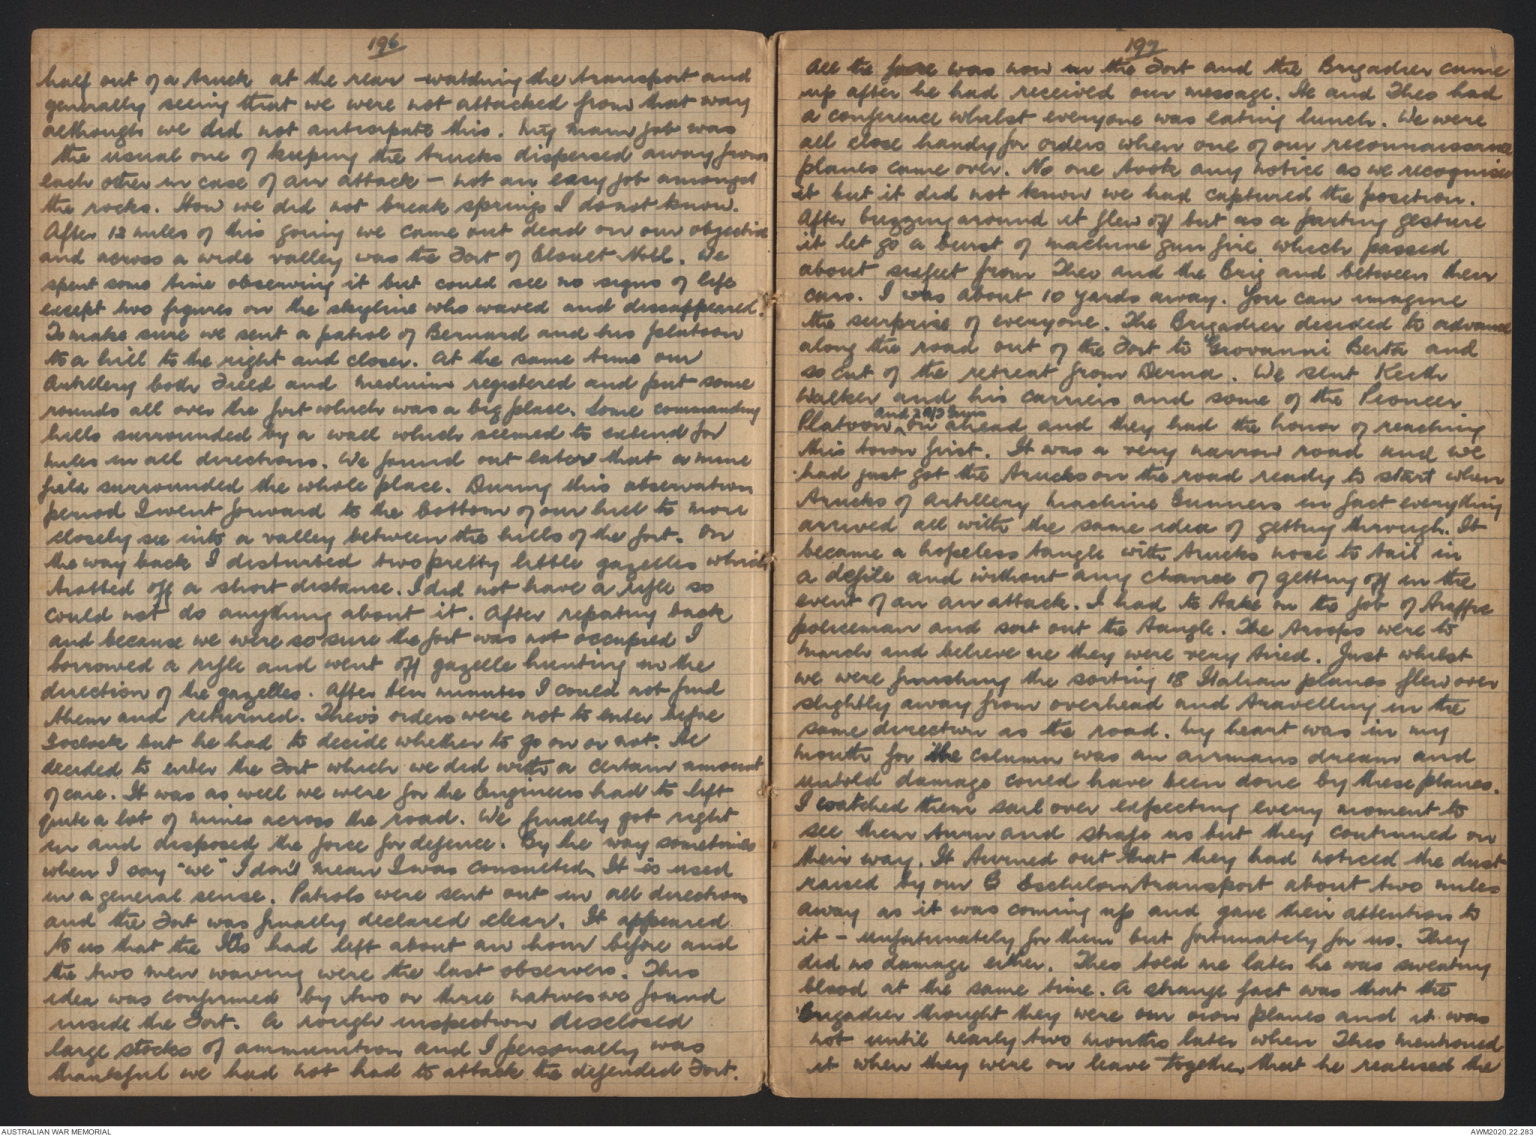 196
half out of a truck at the rear - watching the transport and
generally seeing that we were not attacked from that way
although we did not anticipate this. My main job was
the usual one of keeping the trucks dispersed away from
each other in case of air attack - not an easy job amongst
the rocks. How we did not break springs I do not know.
After 12 miles of this going we came out dead on our objective
and across a wide valley was the Fort of Blouet Noll. We
spent some time observing it but could see no signs of life
except two figures on the skyline who waved and dissappeared.
To make sure we sent a patrol of Bernard and his platoon
to a hill to the right and closer. At the same time our
Artillery both Field and medium registered and put some
rounds all over the fort which was a big place. Some commanding
hills surrounded by a wall which seemed to extend for
miles in all directions. We found out later that a mine
field surrounded the whole place. During this observation
period I went forward to the bottom of our hill to more
closely see into a valley between the hills of the fort. On
the way back I disturbed two pretty little gazelles which
trotted off a short distance. I did not have a rifle so
could not do anything about it. After repating back
and because we were so sure the fort was not occupied I
borrowed a rifle and went off gazelle hunting in the
direction of the gazelles. After ten minutes I could not find
them and returned. Theo's orders were not to enter before
2oclock but he had to decide whether to go on or not. He
decided to enter the Fort which we did with a certain amount
of care. It was as well we were for the Engineers had to lift
quite a lot of mines across the road. We finally got right
in and disposed the force for defence. By the way sometimes
when I say "we" I don't mean I was consulted. It is used
in a general sense. Patrols were sent out in all directions
and the Fort was finally declared clear. It appeared
to us that the Itis had left about an hour before and
the two men waving were the last observers. This
idea was confirmed by two or three natives we found
inside the Fort. A rough inspection disclosed
large stocks of ammunition and I personally was
thankful we had not had to attack the defended Fort.
197
All the force was now in the Fort and the Brigadier came
up after he had received our message. He and Theo had
a conference whilst everyone was eating lunch. We were
all close handy for orders when one of our reconnaissance
planes came over. No one took any notice as we recognised
it but it did not know we had captured the position.
After buzzing around it flew off but as a parting gesture
it let go a burst of machine gun fire which passed
about six feet from Theo and the Brig and between their
cars. I was about 10 yards away. You can imagine
the surprise of everyone. The Brigadier decided to advance
along the road out of the Fort to Giovanni Berta and
so cut of the retreat from Derna. We sent Keith
Walker and his carriers and some of the Pioneer
and 2 A/T Guns
Platoon on ahead and they had the honor of reaching
this town first. It was a very narrow road and we
had just got the trucks on the road ready to start when
trucks of Artillery Machine Gunners in fact everything
arrived all with the same idea of getting through. It
became a hopeless tangle with trucks nose to tail in
a defile and without any chance of getting off in the
event of an air attack. I had to take on the job of traffic
policeman and sort out the tangle. The troops were to
march and believe me they were very tired. Just whilst
we were finishing the sorting 18 Italian planes flew over
slightly away from overhead and travelling in the
same direction as the road. My heart was in my
mouth for the column was an airmans dream and
untold damage could have been done by these planes.
I watched them sail over expecting every moment to
see them turn and strafe us but they continued on
their way. It turned out that they had noticed the dust
raised by our B Eschelon transport about two miles
away as it was coming up and gave their attention to
it - unfortunately for them but fortunately for us. They
did no damage either. Theo told me later he was sweating
blood at the same time. A strange fact was that the
Brigadier thought they were our own planes and it was
not until nearly two months later when Theo mentioned
it when they were on leave together that he realised the
AUSTRALIAN WAR MEMORIAL
AWM2020.22.283